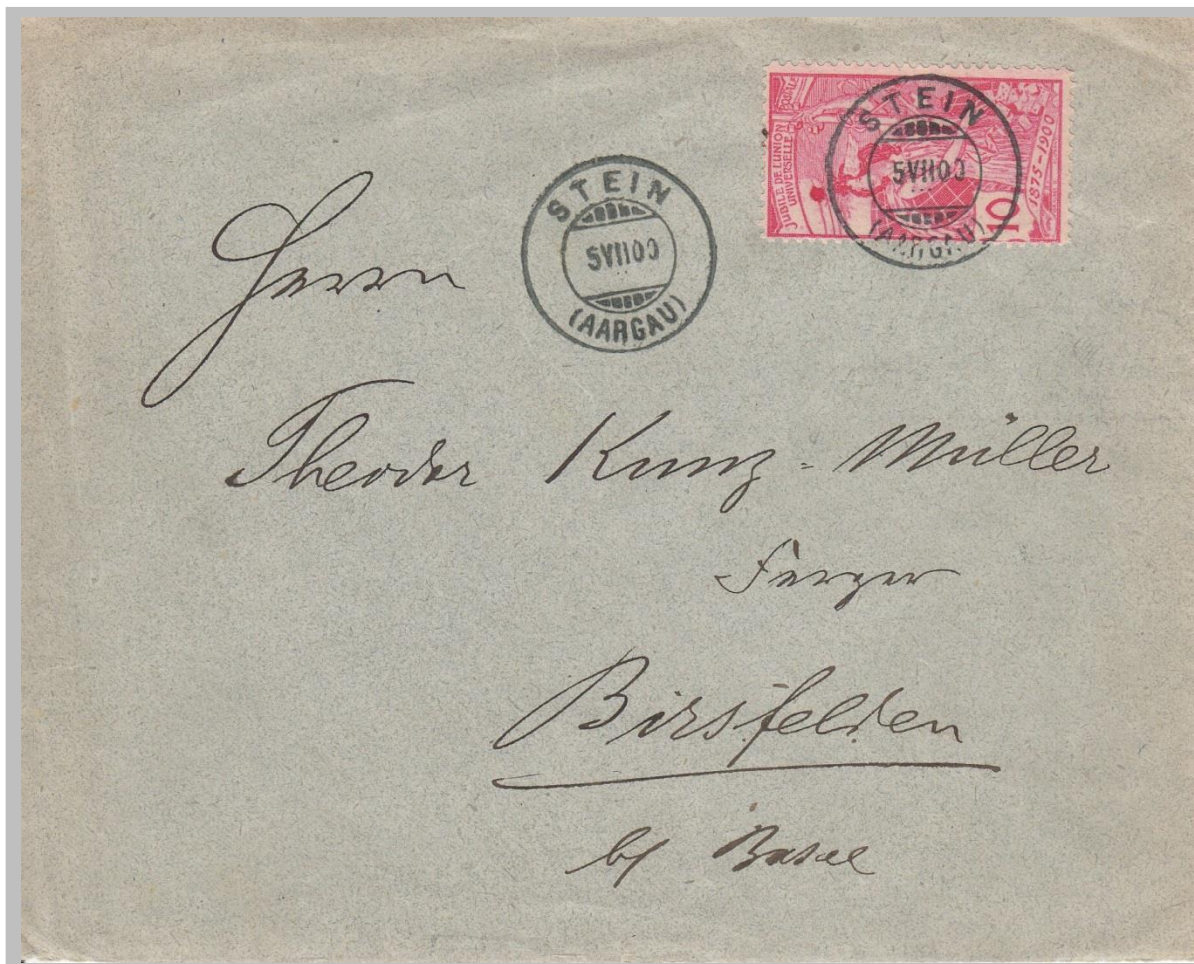 JUBILÉ DE L'UNION
UNIVERSELLE
1875-1900
10
STEIN
5VII00
(AARGAU)
STEIN
5VII00
(AARGAU)
Herrn
Theodor Kunz-Müller
Ferger
Birsfelden
b/ Basel